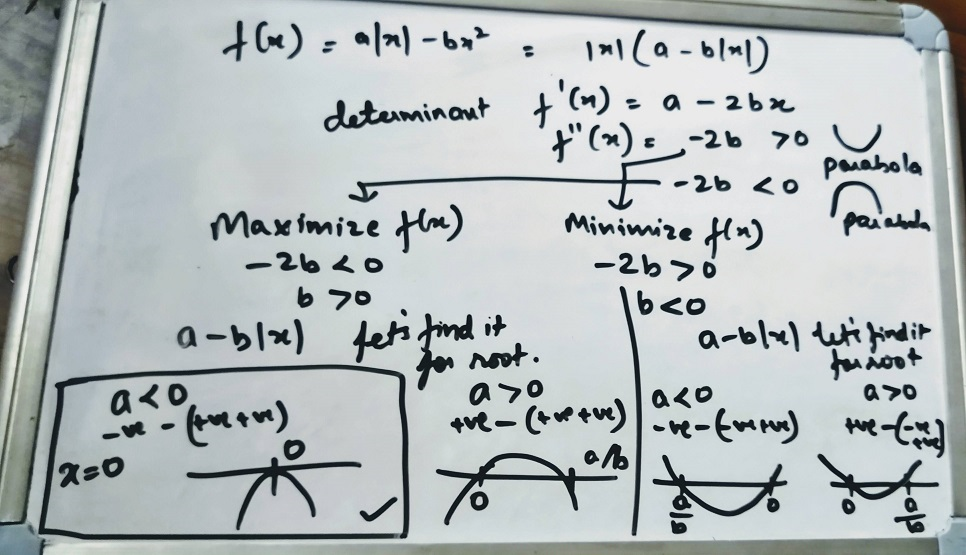 f(x) = a|x| - bx² = |x|(a - b|x|)
determinant f'(x) = a - 2bx
f''(x) = -2b >0
parabola
-2b <0
parabola
Maximize f(x)
-2b < 0
b > 0
a-b|x| let's find it
for root.
a<0
-ve - (+ve+ve)
x=0
0
a>0
+ve - (+ve+ve)
0
a/b
Minimize f(x)
-2b > 0
b<0
a-b|x| let's find it
for root
a<0
-ve-(-ve+ve)
a/b
0
a>0
+ve-(-ve
+ve)
0
a/b